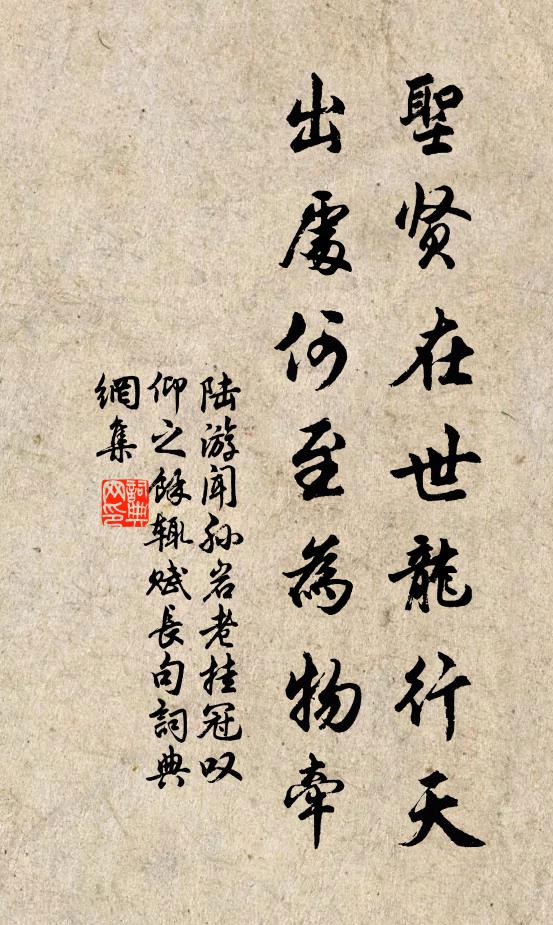 聖贤在世龍行天
出處何至為物牽
陆游闻孙岩老挂冠叹
仰之餘辄赋長句詞典
網集
詞典网印